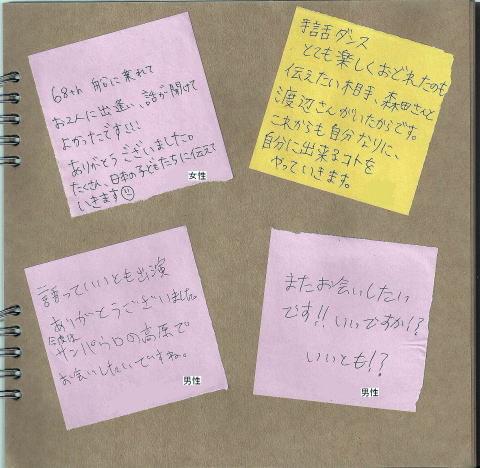 68th 船に乗れて
お2人に出逢い、話が聞けて
よかったです!!!
ありがとうございました。
たくさん、日本の子どもたちに伝えて
いきます
女性
手話ダンス
とても楽しくおどれたのも
伝えたい相手、森田さんと
渡辺さんがいたからです。
これからも自分なりに、
自分に出来るコトを
やっていきます。
語っていいとも出演
ありがとうございました。
今度は
サンパウロの高原で
お会いしたいですね。
男性
またお会いしたい
です!! いいですか!?
いいとも!?
男性